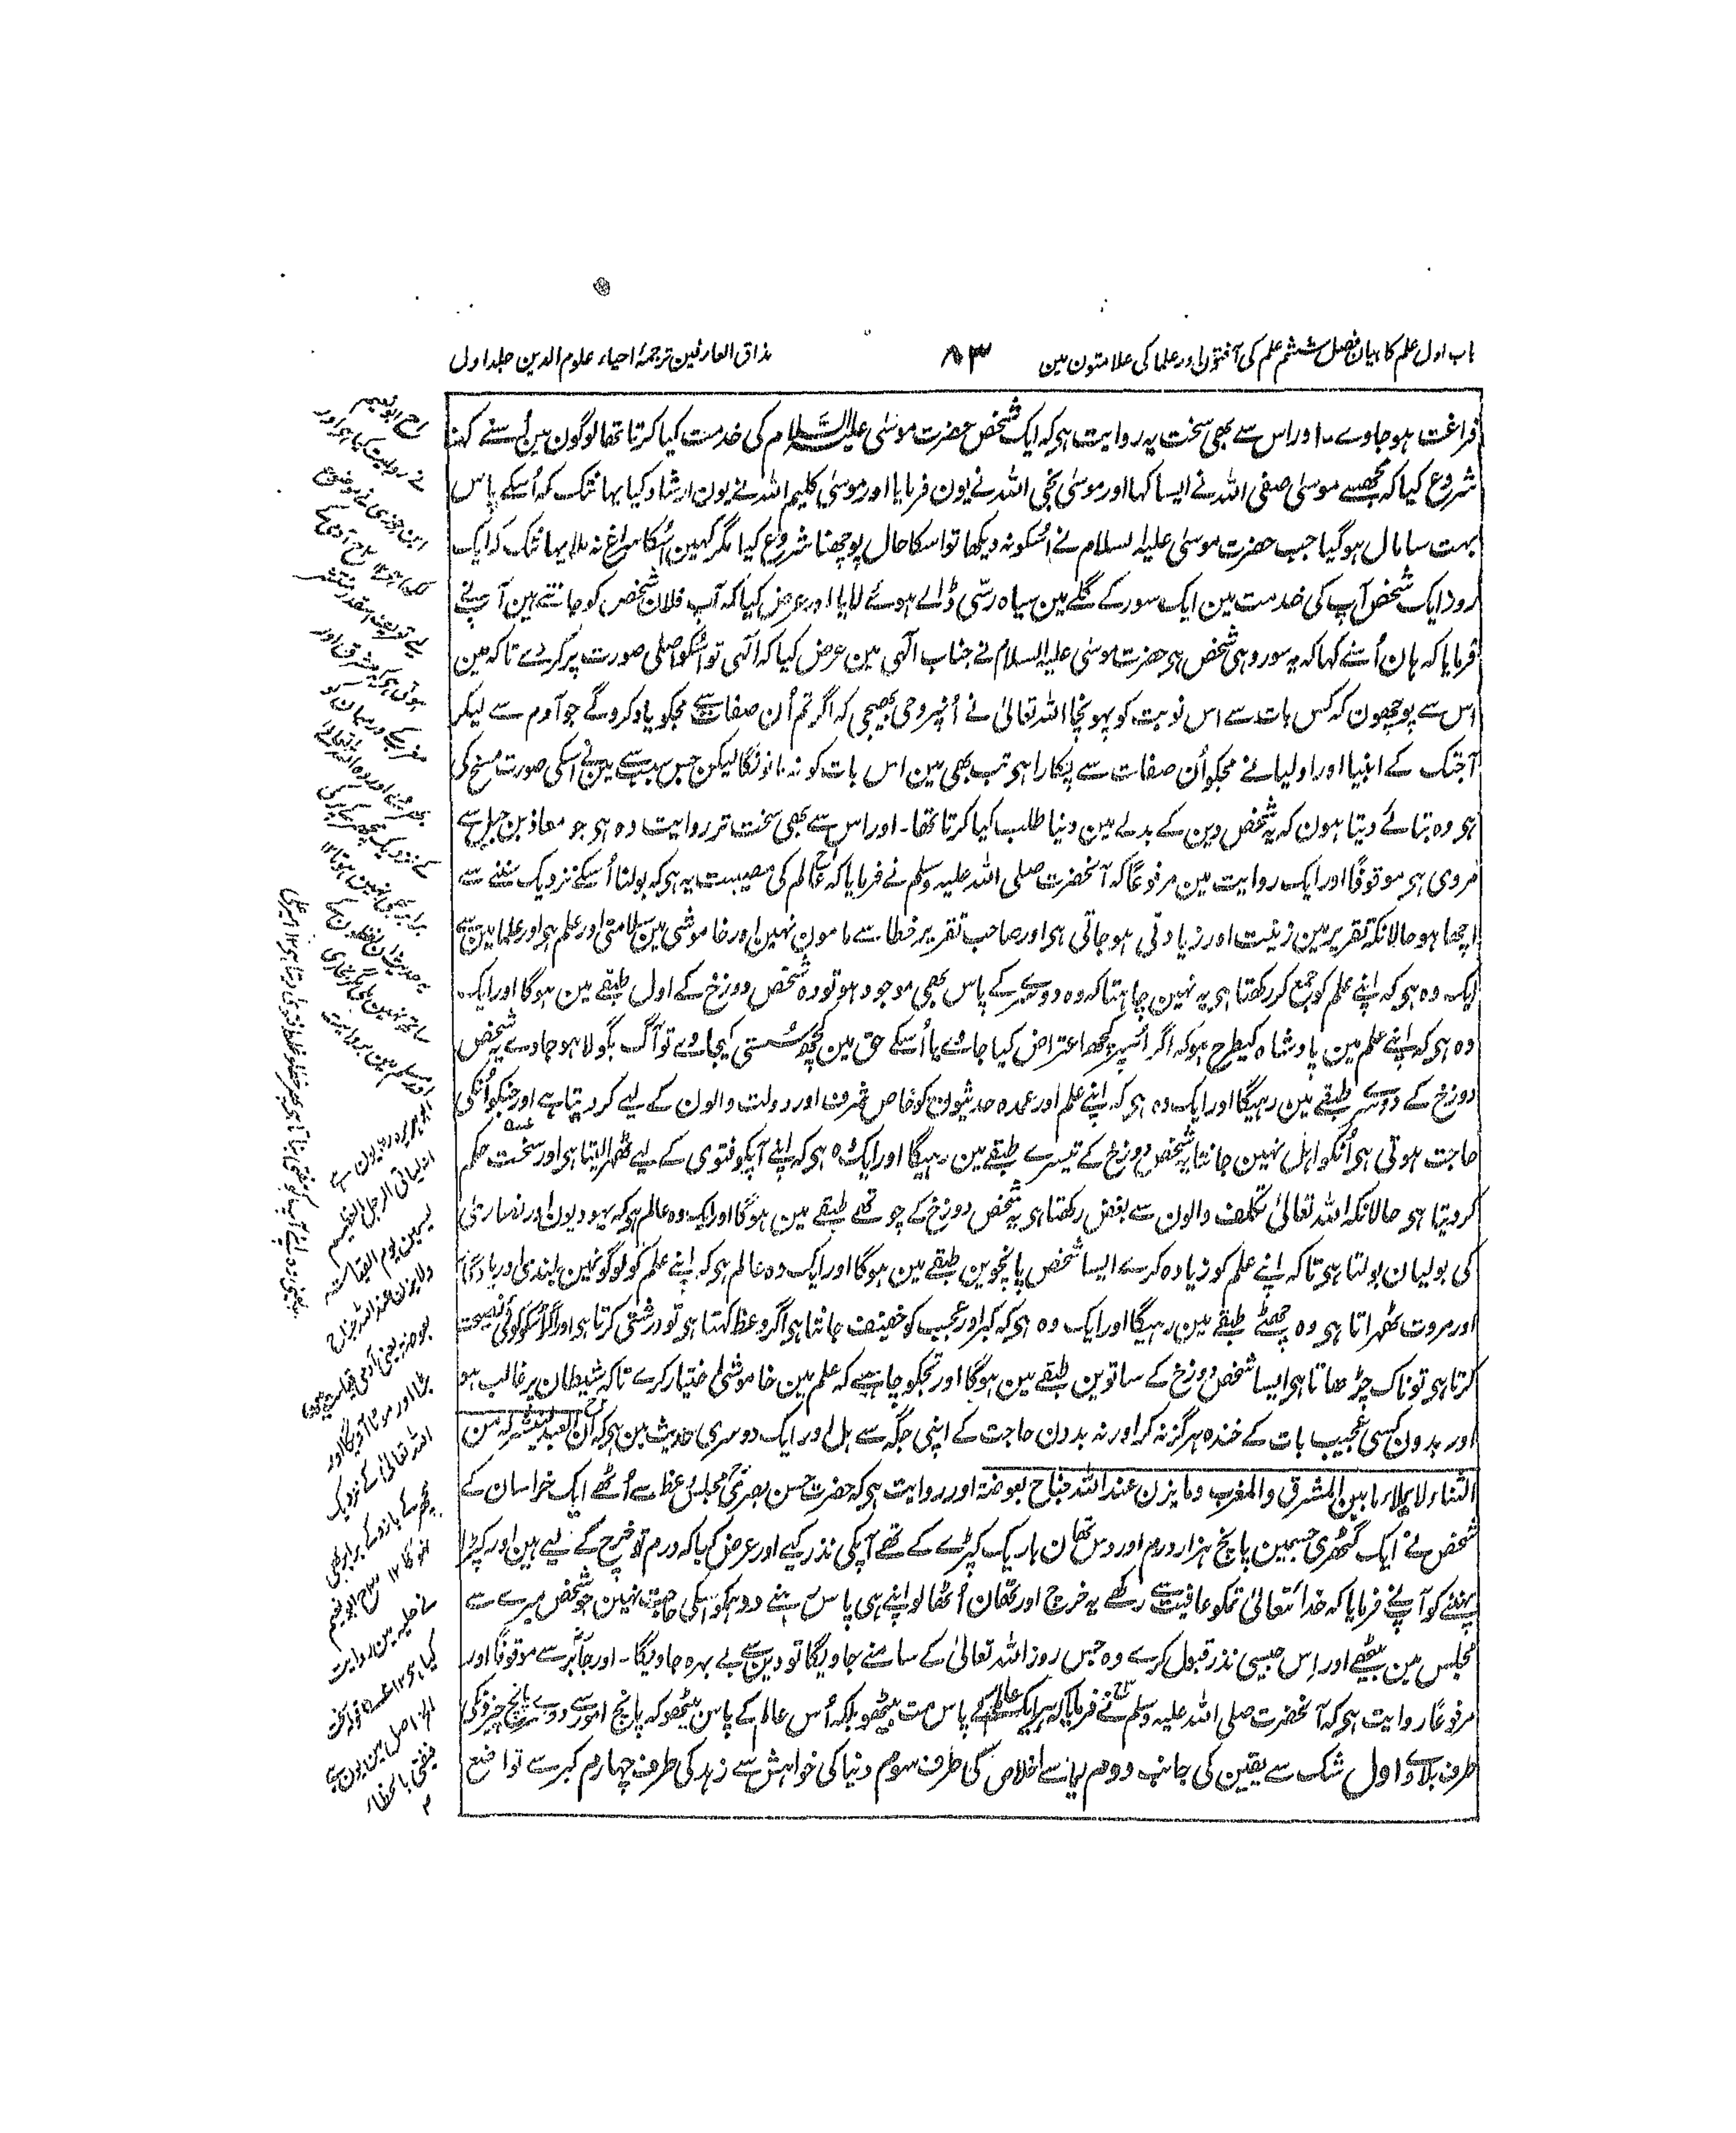 باب اول علم کا بیان فصل ششم علم کی آفتون اور علما کی علامتون مین
۸۳
مذاق العارفین ترجمۂ احیاء علوم الدین جلد اول
فراغت ہو جاوے۔ اور اس سے بھی سخت یہ روایت ہی کہ ایک شخص حضرت موسٰی علیہ السلام کی خدمت کیا کرتا تھا لوگون مین اُسنے کہنا
شروع کیا کہ مجھسے موسٰی صفی اللہ نے ایسا کہا اور موسٰی نجی اللہ نے یون فرمایا اور موسٰی کلیم اللہ نے یون ارشاد کیا یہانتک کہ اُسکے پاس
بہت سا مال ہو گیا جب حضرت موسٰی علیہ السلام نے اُسکو نہ دیکھا تو اسکا حال پوچھنا شروع کیا مگر کہین اُسکا سراغ نہ ملا یہانتک کہ ایک
روز ایک شخص آپ کی خدمت مین ایک سور کے گلے مین سیاہ رسّی ڈالے ہوئے لایا اور عرض کیا کہ آپ فلان شخص کو جانتے ہین آپنے
فرمایا کہ ہان اُسنے کہا کہ یہ سور وہی شخص ہی حضرت موسٰی علیہ السلام نے جناب الٰہی مین عرض کیا کہ الٰہی تو اُسکو اصلی صورت پر کردے تاکہ مین
اس سے پوچھون کہ کس بات سے اس نوبت کو پہونچا اللہ تعالیٰ نے اُنپر وحی بھیجی کہ اگر تم اُن صفات سے مجکو یاد کروگے جو آدم سے لیکر
آجتک کے انبیا اور اولیا نے مجکو اُن صفات سے پکارا ہی تب بھی مین اس بات کو نہ مانونگا لیکن جس سبب سے مین نے اسکی صورت مسخ کی
ہی وہ بتائے دیتا ہون کہ یہ شخص دین کے بدلے مین دنیا طلب کیا کرتا تھا۔ اور اس سے بھی سخت تر روایت وہ ہی جو معاذ بن جبل سے
مروی ہی موقوفًا اور ایک روایت مین مرفوعًا کہ آنحضرت صلی اللہ علیہ وسلم نے فرمایا کہ عالم کی مصیبت یہ ہی کہ بولنا اُسکے نزدیک سننے سے
اچھا ہو حالانکہ تقریر مین زینت اور زیادتی ہو جاتی ہی اور صاحب تقریر خطا سے مامون نہین اور خاموشی مین سلامتی اور علم ہی اور علما مین سے
ایک وہ ہی کہ اپنے علم کو جمع کر رکھتا ہی یہ نہین چاہتا کہ وہ دوسرے کے پاس بھی موجود ہو تو وہ شخص دوزخ کے اول طبقے مین ہوگا اور ایک
وہ ہی کہ اپنے علم مین پادشاہ کیطرح ہو کہ اگر اُسپر کچھ اعتراض کیا جائے یا اُسکے حق مین کچھ سُستی کیجائے تو آگ بگولا ہو جاوے یہ شخص
دوزخ کے دوسرے طبقے مین رہیگا اور ایک وہ ہی کہ اپنے علم اور عمدہ حدیثون کو خاص شرف اور دولت والون کے لیے کر دیتا ہے اور جنکو اُنکی
حاجت ہوتی ہی اُنکو اہل نہین جانتا یہ شخص دوزخ کے تیسرے طبقے مین رہیگا اور ایک وہ ہی کہ اپنے آپکو فتوی کے لیے ٹھہرا لیتا ہی اور سخت حکم
کر دیتا ہی حالانکہ اللہ تعالیٰ تکلف والون سے بغض رکھتا ہی یہ شخص دوزخ کے چوتھے طبقے مین ہوگا اور ایک وہ عالم ہی کہ یہودیون اور نصارٰی
کی بولیان بولتا ہی تاکہ اپنے علم کو زیادہ کرے ایسا شخص پانچوین طبقے مین ہوگا اور ایک وہ عالم ہی کہ اپنے علم کو لوگونمین بلندی اور یادگار
اور مروت ٹھہراتا ہی وہ چھٹے طبقے مین رہیگا اور ایک وہ ہی کہ کبر اور عجب کو خفیف جانتا ہی اگر وعظ کہتا ہی تو درشتی کرتا ہی اور اگر اُسکو کوئی نصیحت
کرتا ہی تو ناک چڑھاتا ہی ایسا شخص دوزخ کے ساتوین طبقے مین ہوگا اور تجکو چاہیے کہ علم مین خاموشی اختیار کرے تاکہ شیطان پر غالب ہو
اور بدون کسی عجیب بات کے خندہ ہرگز نہ کر اور نہ بدون حاجت کے اپنی جگہ سے ہل اور ایک دوسری حدیث مین ہی کہ ان العبد لینشر لہ من
الثناء ما یملاء ما بین المشرق والمغرب وما یزن عند اللہ جناح بعوضۃ اور روایت ہی کہ حضرت حسن بصری مجلس وعظ سے اُٹھے ایک خراسان کے
شخص نے ایک گٹھری جسمین پانچ ہزار درم اور دس تھان باریک کپڑے کے تھے آپکی نذر کیے اور عرض کیا کہ درم تو خرچ کے لیے ہین اور کپڑا
پہننے کو آپنے فرمایا کہ خدا تعالیٰ تمکو عافیت سے رکھے یہ خرچ اور تھان اُٹھا لو اپنے ہی پاس رہنے دو ہمکو اسکی حاجت نہین جو شخص میرے سے
مجلس مین بیٹھے اور اِس جیسی نذر قبول کرے وہ جس روز اللہ تعالیٰ کے سامنے جاویگا تو دین سے بے بہرہ جاویگا۔ اور جابر سے موقوفًا اور
مرفوعًا روایت ہی کہ آنحضرت صلی اللہ علیہ وسلم نے فرمایا کہ ہر ایک عالم کے پاس مت بیٹھو بلکہ اُس عالم کے پاس بیٹھو کہ پانچ امور سے دوسرے پانچ چیزونکی
طرف بلاوے اول شک سے یقین کی جانب دوم ریا سے اخلاص کی طرف سوم دنیا کی خواہش سے زہد کی طرف چہارم کبر سے تواضع
ابو نعیم
نے روایت کیا ہی اور
ابن جوزی نے موضوع
ہوتی ہی کہ مشرق اور
مغرب کے درمیان کو
کے نزدیک مچھر کے پر کی
برابر بھی نہین ہوتا ۱۲
یہ حدیث ان لفظون کے
ساتھ نہین ملی مگر بخاری
اور مسلم مین بروایت
ابو ہریرہ رض یون ہے
انہ لیاتی الرجل العظیم
السمین یوم القیامۃ
ولا یزن عند اللہ جناح
بعوضۃ یعنی آدمی قیامت مین
بڑا اور موٹا آویگا اور
اللہ تعالیٰ کے نزدیک
مچھر کے بازو کے برابر بھی
نہوگا ۱۲ ابو نعیم
نے حلیہ مین روایت
کیا ہی ۱۲
اصل مین یون ہے
فیفتی بالخطاء